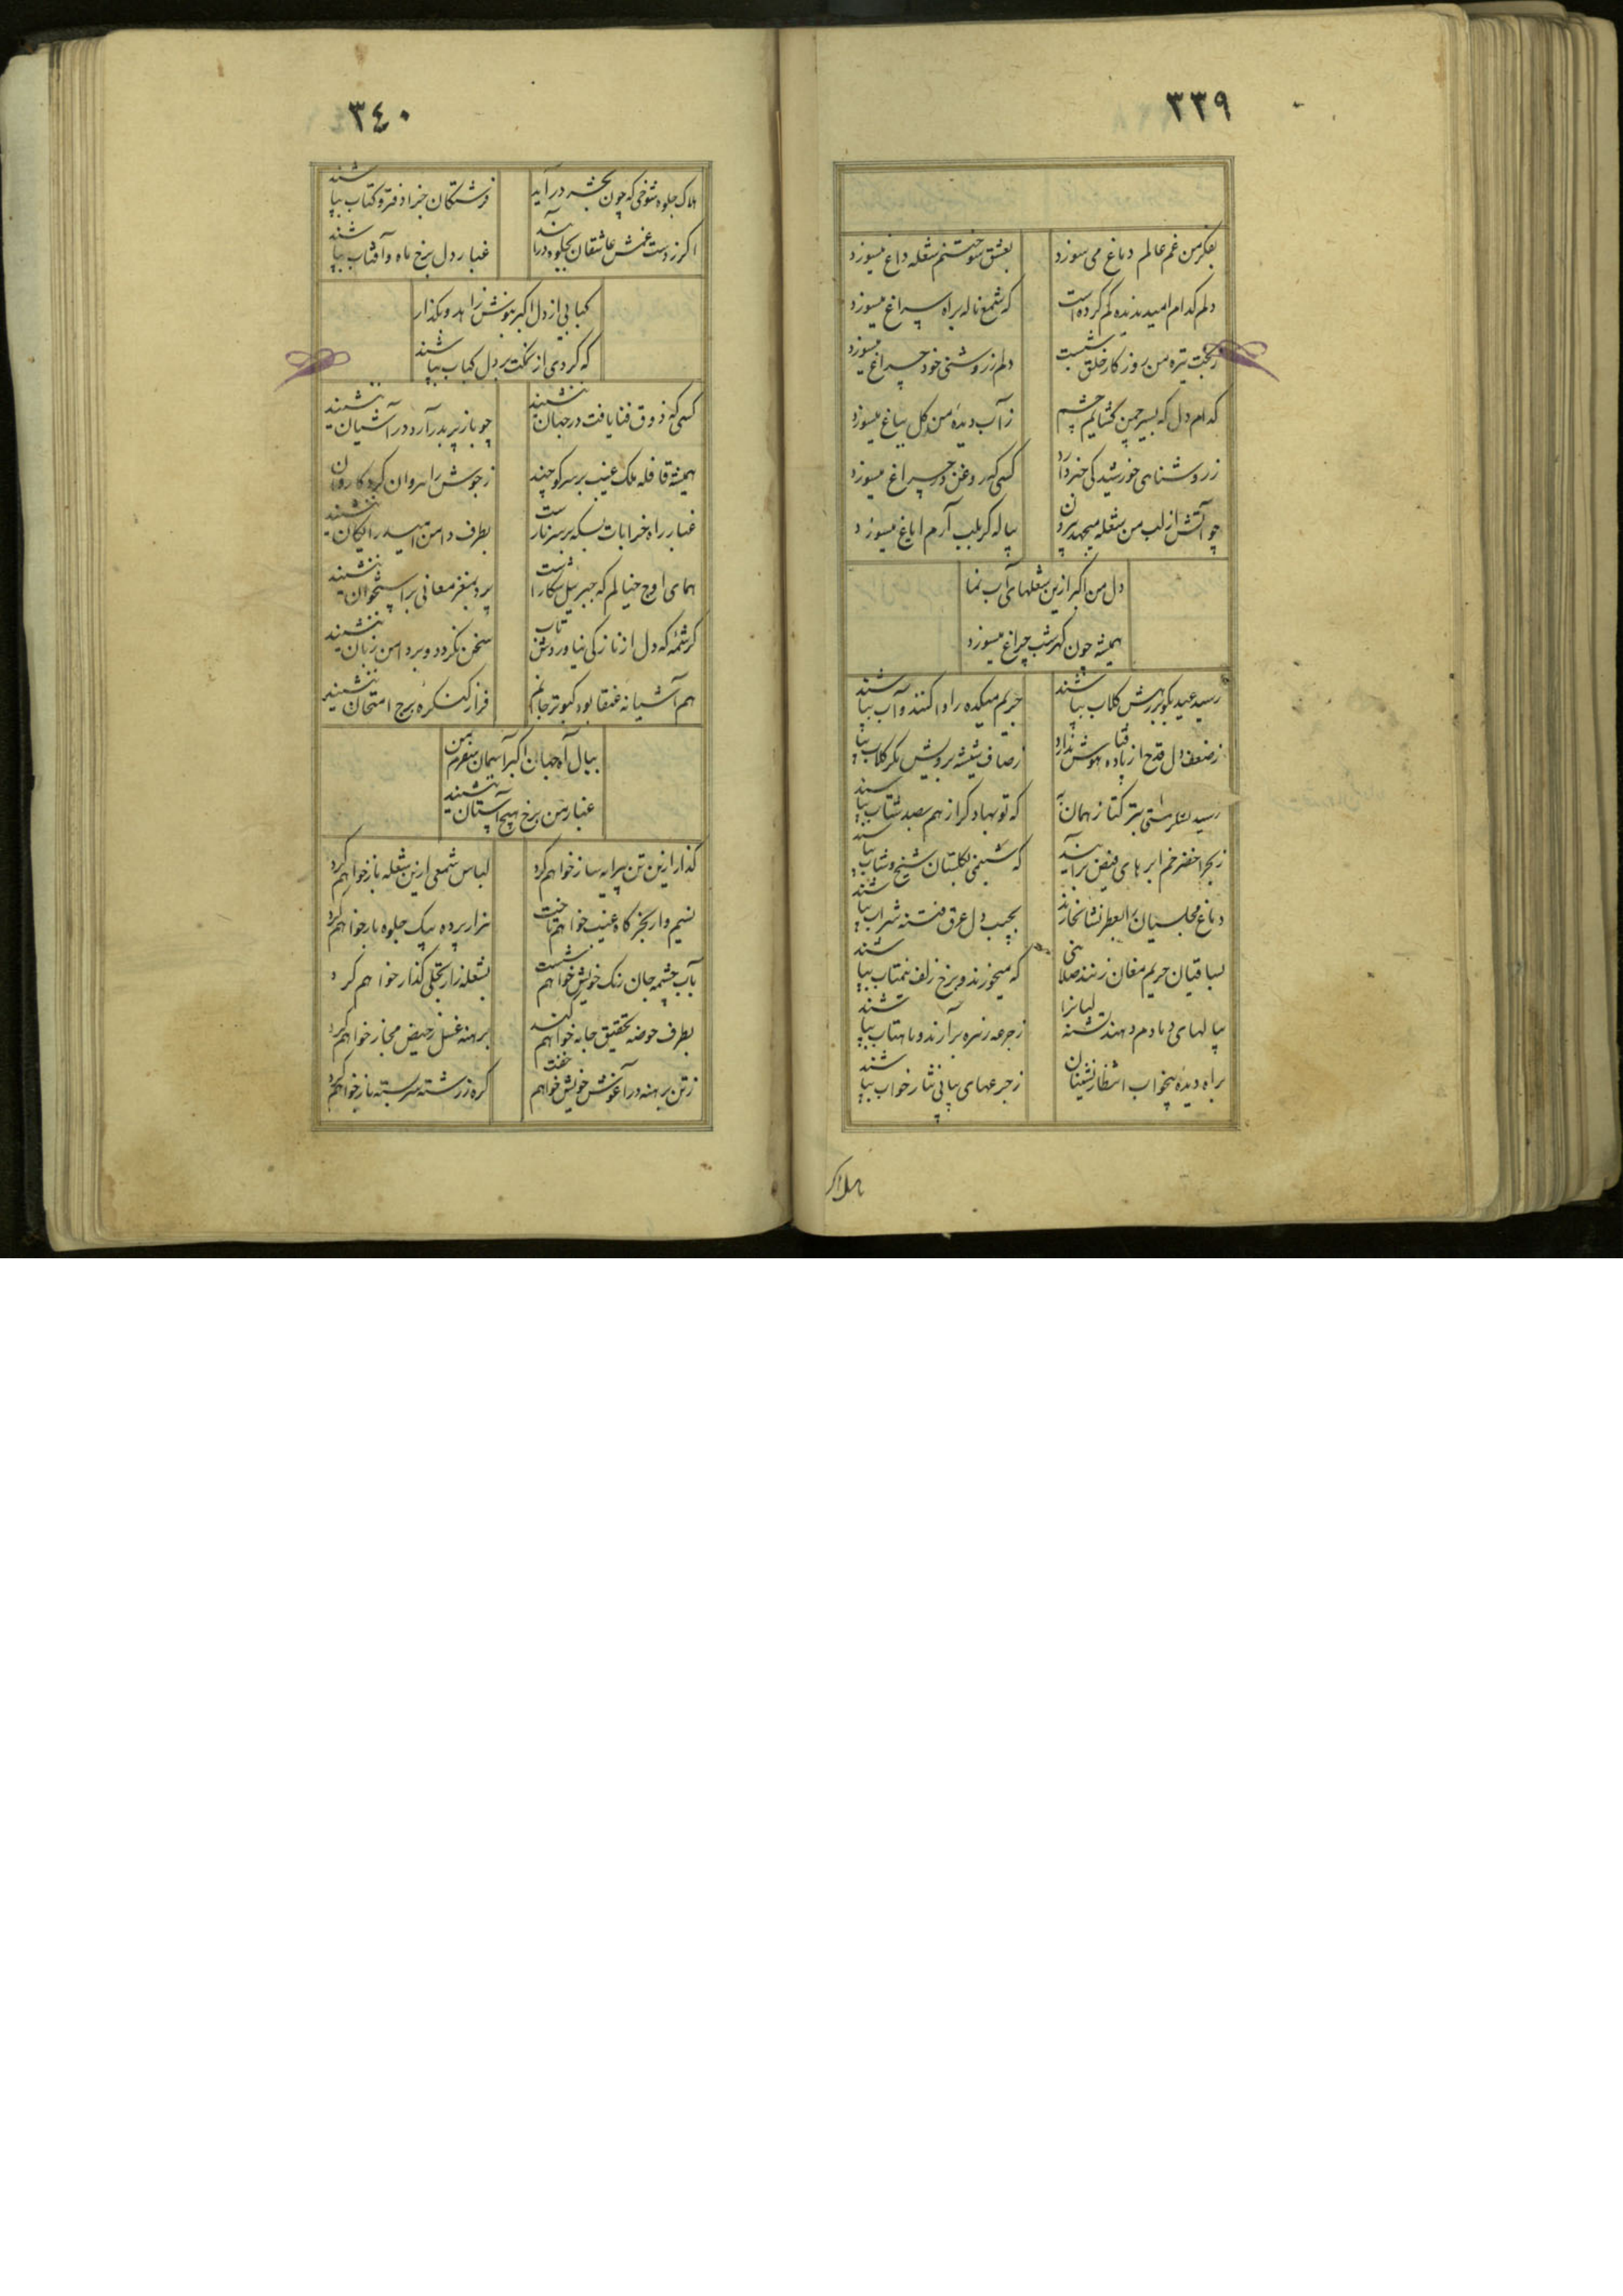 ٣٣٩
بفکر من غم عالم دماغ می سوزد
بعشق سوختنم شعله داغ میسوزد
دلم کدام امید ندیده گم کرده است
که شمع ناله براه سراغ میسوزد
ز بخت تیره من روز کار خلق شبست
دلم ز روشنی خود چراغ میسوزد
کدام دل که بسیر چمن گشایم چشم
ز آب دیده من گل بباغ میسوزد
ز روشناهی خورشید کی خبر دارد
کسی که روغن در چراغ میسوزد
چو آتش از لب من شعله میجهد بیرون
پیاله گر بلب آرم ایاغ میسوزد
دل من اکبر ازین شعلهای آب نما
همیشه چون گهر شب چراغ میسوزد
رسید عید بکو برهش گلاب بپاشند
حریم میکده را وا کنند و آب بپاشند
ز ضعف دل قدح از باده هوش ندارد
ز صاف شیشه برویش مگر گلاب بپا
رسید لشکر مستی بتر کتاز همان به
که توبها دگر از هم بصد شتاب بپاشند
ز بحر اخضر خم ابر های فیض بر آیند
که شبنمی بگلستان شیخ و شاب بپاشند
دماغ مجلسیان را بعطر نشا نخارند
بجیب دل عرق فتنه شراب بپاشند
بساقیان حریم مغان زنند صلائی
که میخورند و برخ زلف نیمتاب بپاشند
پیالهای دمادم دهند تشنه لبانرا
ز جرعه زهره برآرند و ماهتاب بپاشند
براه دیده بیخواب انتظار نشینان
ز جرعهای پیاپی نثار خواب بپاشند
هلاک
٣٤٠
هلاک جلوه شوخی که چون بحشر درآید
فرشتگان جزا دفتر و کتاب بپاشند
اگر ز دست غمش عاشقان بجلوه درآیند
غبار دل برخ ماه و آفتاب بپاشند
کبابی از دل اکبر بنوش زاهد و بگذار
که گردی از نمکت بر دل کباب بپاشند
کسی که ذوق فنا یافت در جهان ننشیند
چو باز پر بدر آرد در آشیان ننشیند
همیشه قافله ملک غیب بر سر کوچند
ز جوش راهروان گرد کاروان ننشیند
غبار راه خرابات بسکه بر سر نازست
بطرف دامن امید رایگان ننشیند
همای اوج خیالم که جبرئیل شکارست
پرد بمغز معانی بر استخوان ننشیند
کرشمه که دل از نازکی نیاورد تابش
سخن نگردد و بر دامن زبان ننشیند
هم آشیانه عنقا بود کبوتر جانم
فراز کنگره برج امتحان ننشیند
ببال آه جهان اکبر آسمان سفرم من
غبار من برخ هیچ آستان ننشیند
گذار ازین تن پیرایه ساز خواهم کرد
لباس شمعی ازین شعله باز خواهم کرد
نسیم وار بخرگاه غیب خواهم تاخت
هزار پرده بیک جلوه باز خواهم کرد
بآب چشمه جان رنگ خویش خواهم شست
بشعله زار تجلی گذار خواهم کرد
بطرف حوضه تحقیق جامه خواهم کند
برهنه غسل ز حیض مجاز خواهم کرد
ز تن برهنه در آغوش خویش خواهم خفت
گره ز رشته سر بسته باز خواهم کرد